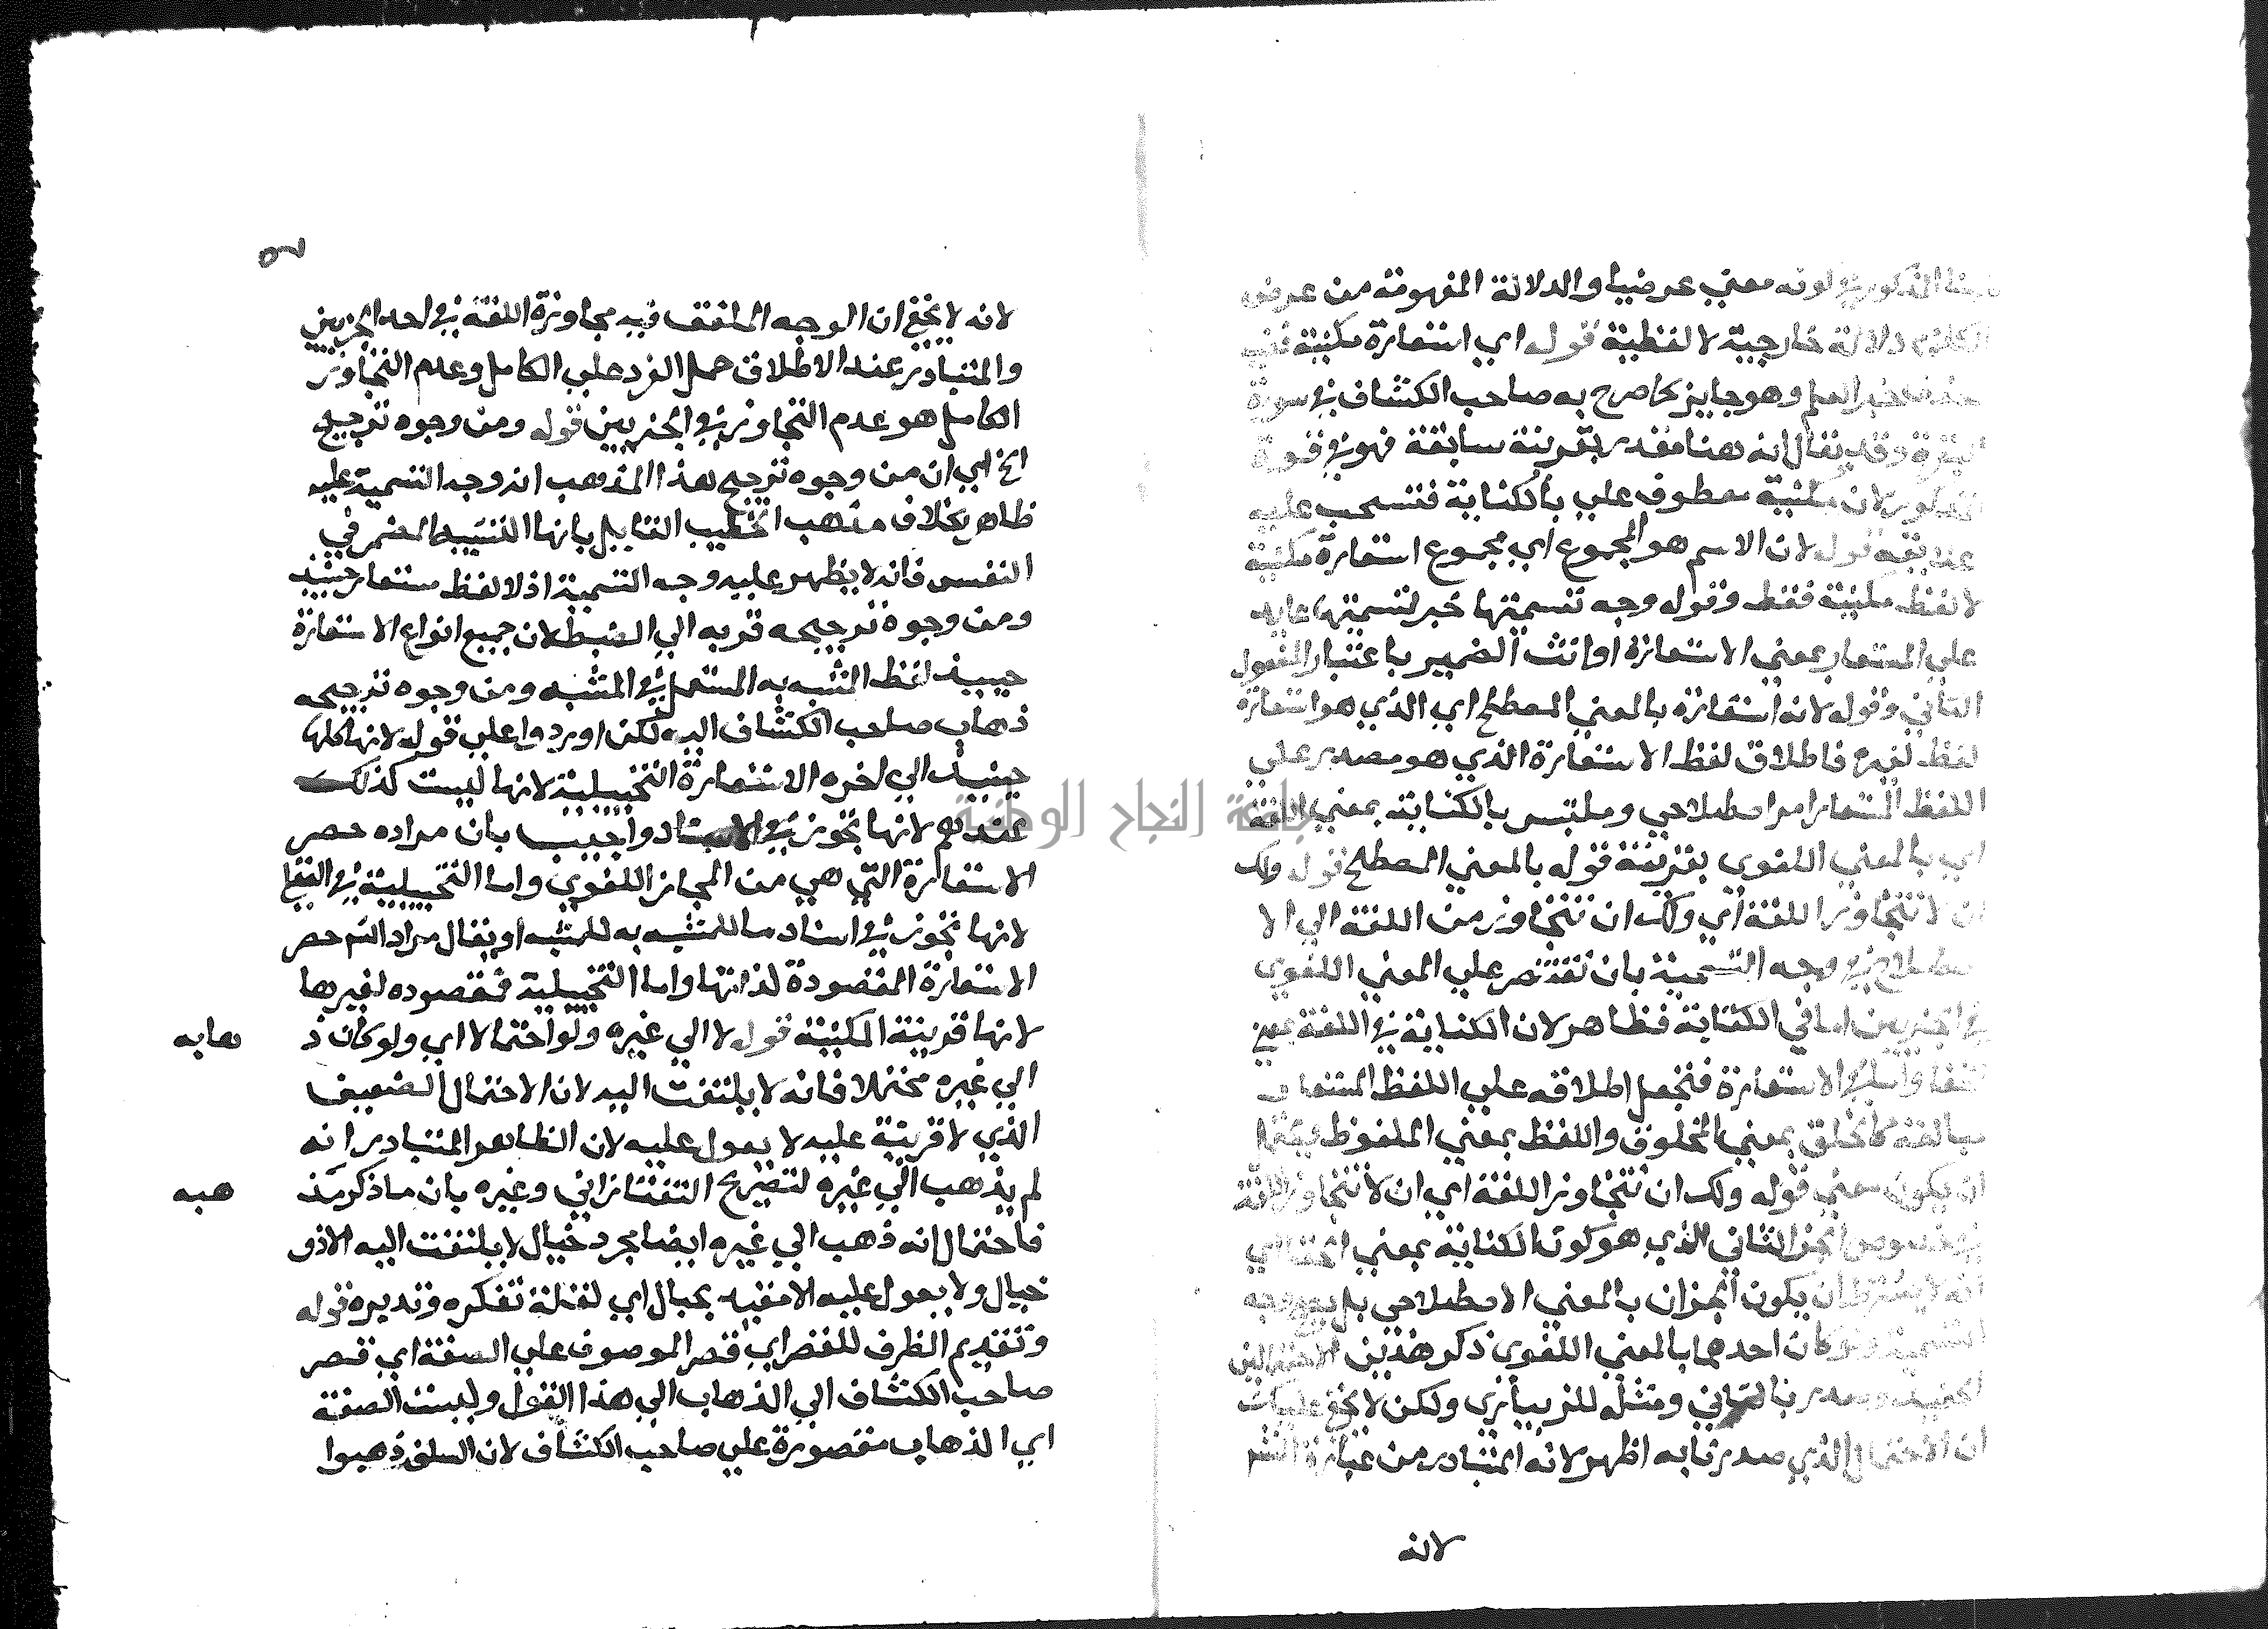 المذكور في كونه معني عرضيا والدلالة المفهومة من عرضه
الكلام دلالة خارجية لا لفظية قوله اي استعارة مكنية ففيه
حذف خبر العلم وهو جايز كما صرح به صاحب الكشاف في سورة
البقرة وقد يقال انه هنا مقدر بقرينة سابقة فهو في قوة
المذكور لان مكنية معطوف علي بالكناية فتسحب عليه
قوله لان الاسم هو المجموع اي مجموع استعارة مكنية
لا لفظ مكنية فقط وقوله وجه تسميتها خبر لتسميتها عايد
علي المستعار بمعني الاستعارة او انث الضمير باعتبار المفعول
الثاني وقوله لانه استعارة بالمعني المصطلح اي الذي هو استعارة
لفظ لغيره فاطلاق لفظ الاستعارة الذي هو مصدر علي
اللفظ المستعار امر اصطلاحي وملتبس بالكناية بمعني اللغة
اي بالمعني اللغوي بقرينة قوله بالمعني المصطلح قوله ولك
ان لا تتجاوز اللغة اي ولك ان تتجاوز من اللغة الي الا
صطلاح في وجه التسمية بان تقتصر علي المعني اللغوي
في الجزيين اما في الكناية فظاهر لان الكناية في اللغة بمعني
الخفا واما في الاستعارة فتجعل اطلاقه علي اللفظ المستعار
مبالغة كالخلق بمعني المخلوق واللفظ بمعني الملفوظ ويحتمل
ان يكون معني قوله ولك ان تتجاوز اللغة اي ان لا تتجاوز اللغة
في خصوص الجز الثاني الذي هو كون الكناية بمعني الخفا اي
انه لا يشترط ان يكون الجزان بالمعني الاصطلاحي بل يوجد وجه
التسمية ولو كان احدهما بالمعني اللغوي ذكر هذين الاحتمالين
الحفيد وصدر بالثاني ومثله للزيباري ولكن لا يخفي عليك
ان الاحتمال الذي صدرنا به اظهر لانه المتبادر من عبارة الشم
لانه
لانه لا يخفي ان الوجه الملفق فيه مجاوزة اللغة في احد الجزيين
والمتبادر عند الاطلاق حمل الفرد علي الكامل وعدم التجاوز
الكامل هو عدم التجاوز في الجزيين قوله ومن وجوه ترجيح
الخ اي ان من وجوه ترجيح هذا المذهب ان وجه التسمية عليه
ظاهر بخلاف مذهب الخطيب القايل بانها التشبيه المضمر في
النفس فانه لا يظهر عليه وجه التسمية اذ لا لفظ مستعار حينيذ
ومن وجوه ترجيحه قربه الي الضبط لان جميع انواع الاستعارة
حينيذ لفظ المشبه به المستعمل في المشبه ومن وجوه ترجيحه
ذهاب صاحب الكشاف اليه لكن اوردوا علي قوله لانها كلها
حينيذ الي اخره الاستعارة التخييلية لانها ليست كذلك
عندهم لانها تجوز في الاسناد واجيب بان مراده حصر
الاستعارة التي هي من المجاز اللغوي واما التخييلية في القفا
لانها تجوز في اسناد ما للمشبه به للمشبه او يقال مراد الشم حصر
الاستعارة المقصودة لذاتها واما التخييلية فمقصوده لغيرها
لانها قرينة المكنية قوله لا الي غيره ولو احتمالا اي ولو كان ذ هابه
الي غيره محتملا فانه لا يلتفت اليه لان الاحتمال الضعيف
الذي لا قرينة عليه لا يعول عليه لان الظاهر المتبادر انه
لم يذهب الي غيره لتصريح التفتازاني وغيره بان ما ذكر مذ هبه
فاحتمال انه ذهب الي غيره ايضا مجرد خيال لا يلتفت اليه الا ذو
خيال ولا يعول عليه الا مقيد بحبال اي لغفلة تفكره وتدبره قوله
وتقديم الظرف للقصر اي قصر الموصوف علي الصفة اي قصر
صاحب الكشاف الي الذهاب الي هذا القول وليست الصفة
اي الذهاب مقصورة علي صاحب الكشاف لان السلف ذهبوا
جامعة النجاح الوطنية